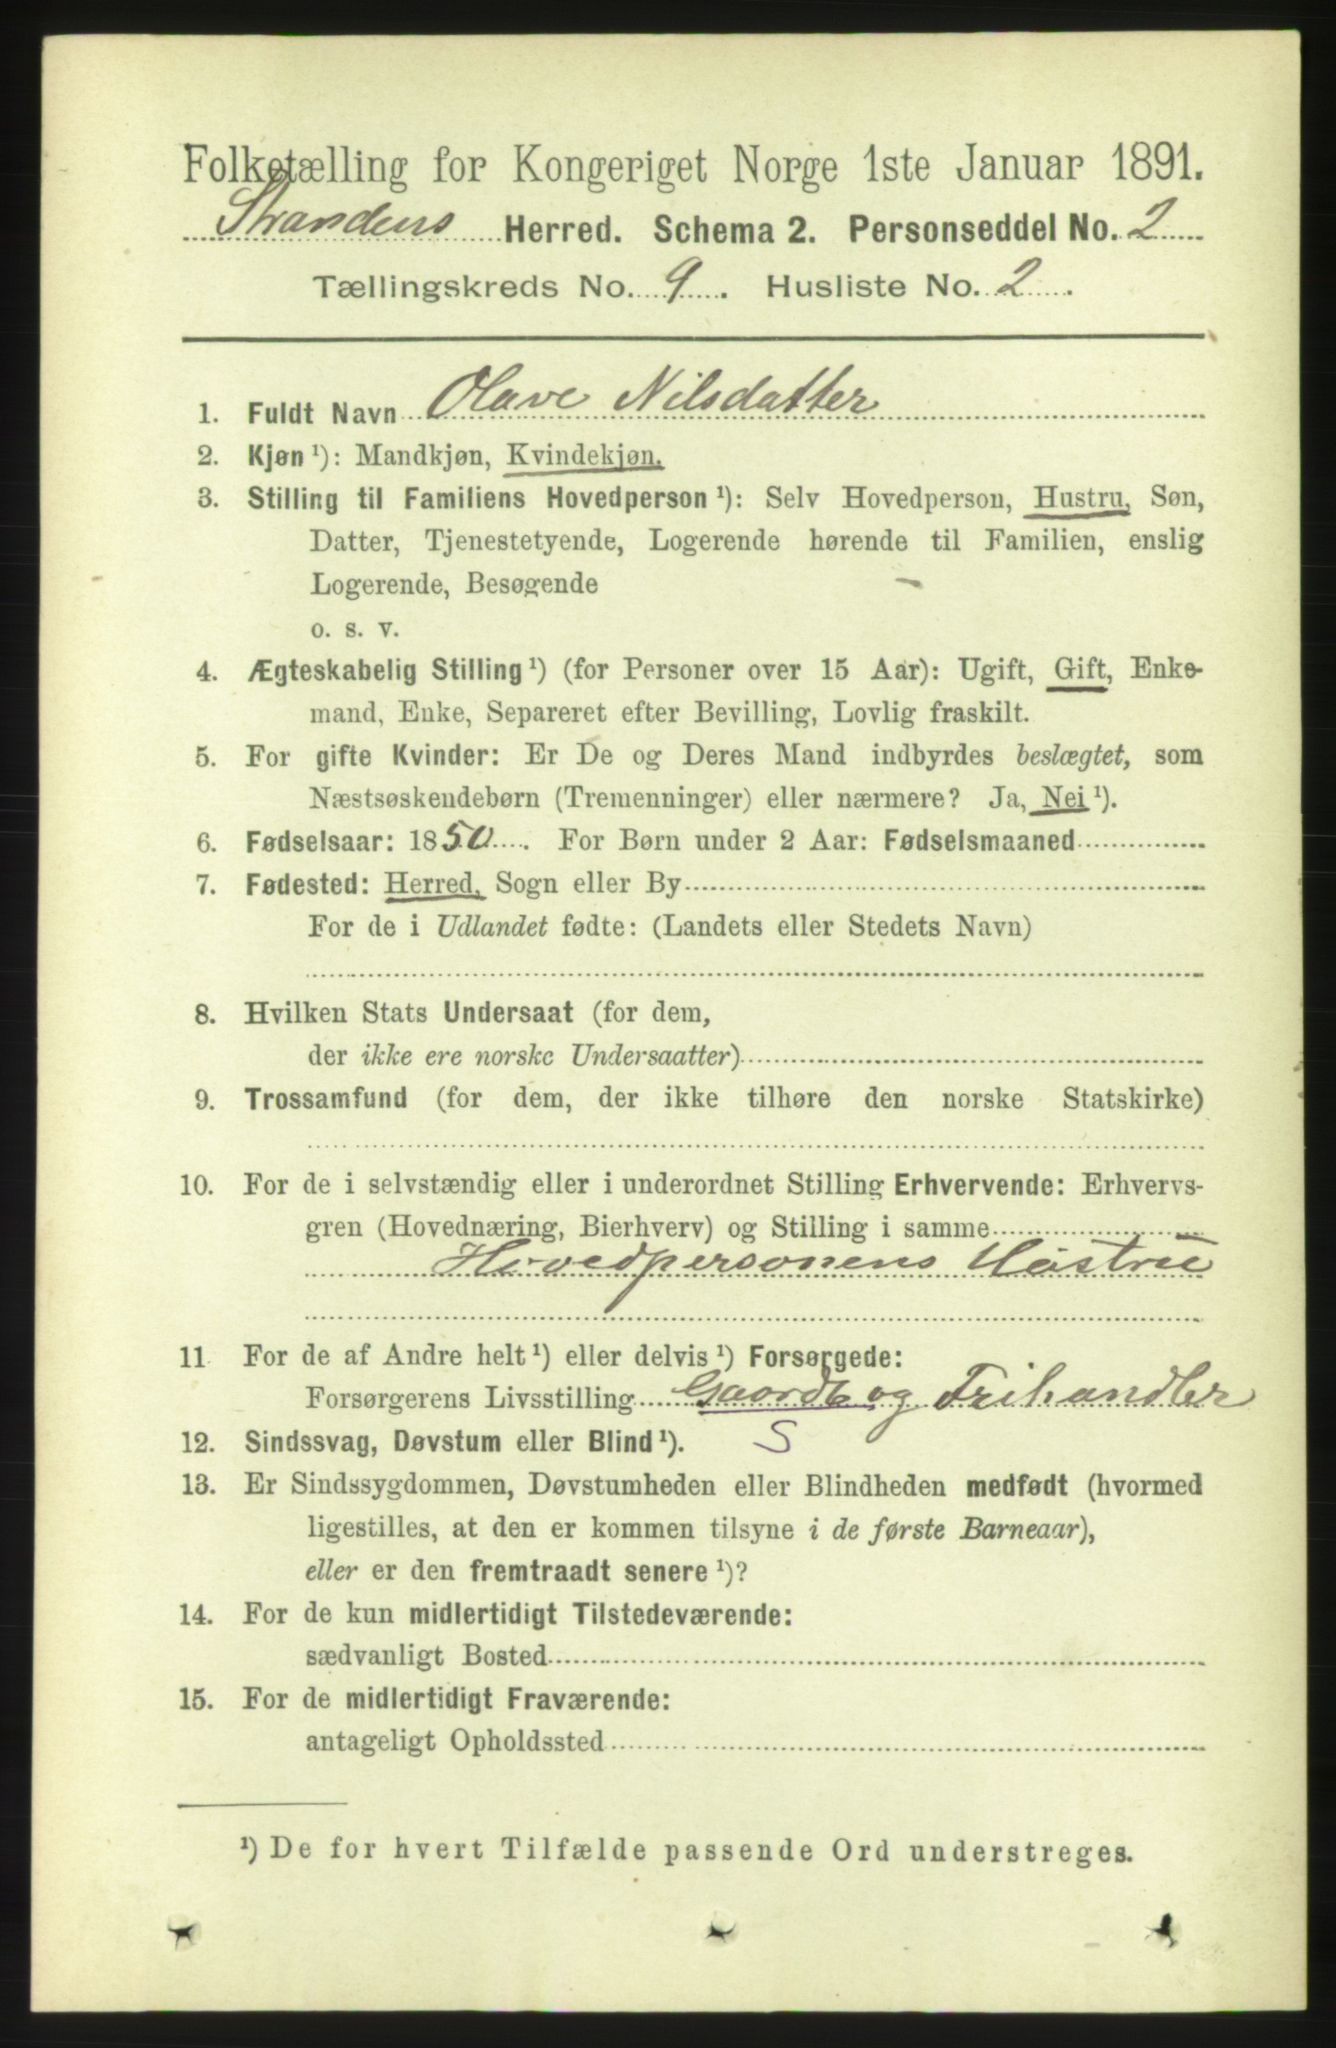 Folketælling for Kongeriget Norge 1ste Januar 1891.
Strandens Herred. Schema 2. Personseddel No. 2
Tællingskreds No. 9. Husliste No. 2.
1. Fuldt Navn Olave Nilsdatter
2. Kjøn¹): Mandkjøn, Kvindekjøn.
3. Stilling til Familiens Hovedperson¹): Selv Hovedperson, Hustru, Søn,
Datter, Tjenestetyende, Logerende hørende til Familien, enslig
Logerende, Besøgende
o. s. v.
4. Ægteskabelig Stilling¹) (for Personer over 15 Aar): Ugift, Gift, Enke-
mand, Enke, Separeret efter Bevilling, Lovlig fraskilt.
5. For gifte Kvinder: Er De og Deres Mand indbyrdes beslægtet, som
Næstsøskendebørn (Tremenninger) eller nærmere? Ja, Nei¹).
6. Fødselsaar: 1850. For Børn under 2 Aar: Fødselsmaaned
7. Fødested: Herred, Sogn eller By
For de i Udlandet fødte: (Landets eller Stedets Navn)
8. Hvilken Stats Undersaat (for dem,
der ikke ere norske Undersaatter)
9. Trossamfund (for dem, der ikke tilhøre den norske Statskirke)
10. For de i selvstændig eller i underordnet Stilling Erhvervende: Erhvervs-
gren (Hovednæring, Bierhverv) og Stilling i samme
Hovedpersonens Hustru
11 For de af Andre helt¹) eller delvis¹) Forsørgede:
Forsørgerens Livsstilling Gaardb og Frihandler
12. Sindssvag, Døvstum eller Blind¹). S
13. Er Sindssygdommen, Døvstumheden eller Blindheden medfødt (hvormed
ligestilles, at den er kommen tilsyne i de første Barneaar),
eller er den fremtraadt senere¹)?
14. For de kun midlertidigt Tilstedeværende:
sædvanligt Bosted
15. For de midlertidigt Fraværende:
antageligt Opholdssted
¹) De for hvert Tilfælde passende Ord understreges.